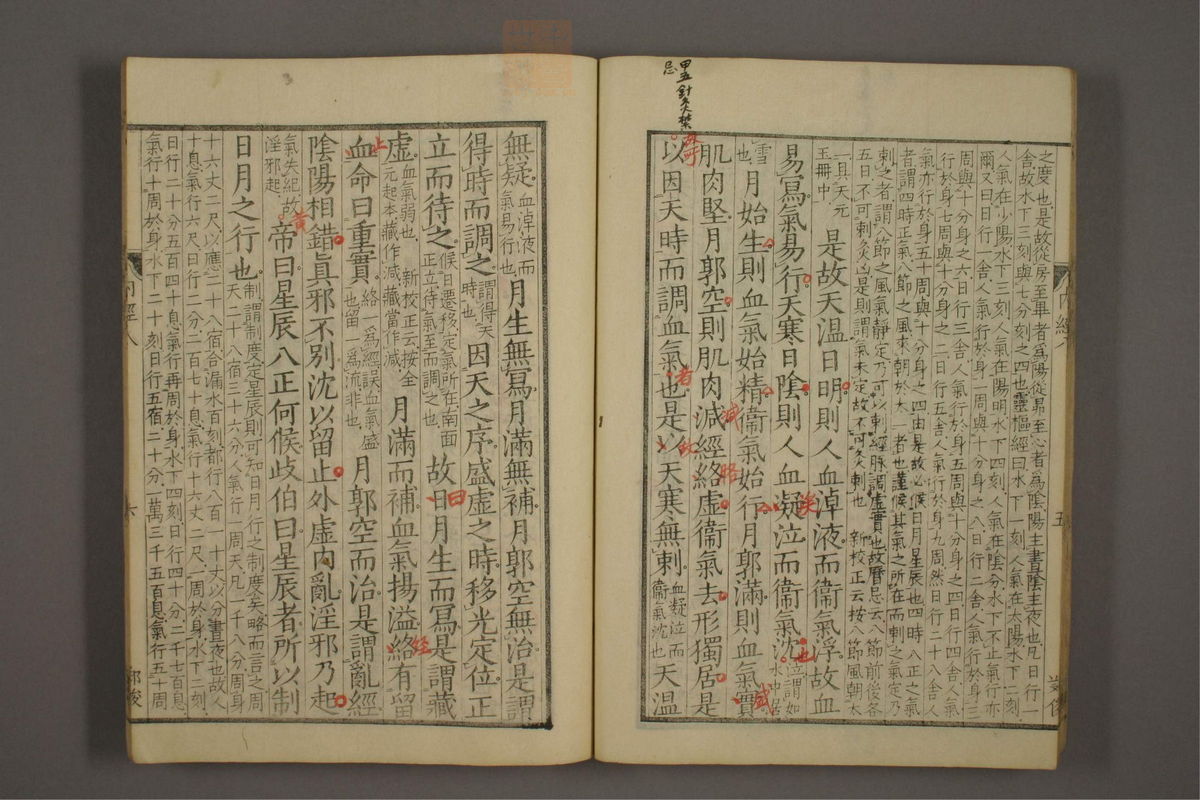 之度也是故從房至畢者爲陽從昴至心者爲陰陽主晝陰主夜也凡日行一
舍故水下三刻與七分刻之四也靈樞經曰水下一刻人氣在太陽水下二刻
人氣在少陽水下三刻人氣在陽明水下四刻人氣在陰分水下不止氣行亦
爾又曰日行一舍人氣行於身一周與十分身之八日行二舍人氣行於身三
周與十分身之六日行三舍人氣行於身五周與十分身之四日行四舍人氣
行於身七周與十分身之二日行五舍人氣行於身九周然日行二十八舍人
氣亦行於身五十周與十分身之四由是故必候日月星辰也四時八正之氣
者謂四時正氣八節之風來朝於太一者也謹候其氣之所在而刺之氣定乃
刺之者謂八節之風氣靜定乃可以刺經脉調虛實也故曆忌云八節前後各
五日不可刺灸凶是則謂氣未定故不可灸刺也 新校正云按八節風朝太
一具天元
玉冊中
是故天温日明則人血淖液而衛氣浮故血
易寫氣易行天寒日陰則人血凝泣而衛氣沈
泣謂如
水中居
雪
也
月始生則血氣始精衛氣始行月郭滿則血氣實
肌肉堅月郭空則肌肉減經絡虛衛氣去形獨居是
以因天時而調血氣也是以天寒無刺
血凝泣而
衛氣沈也
天温
甲五針灸禁
忌
無疑
血淖液而
氣易行也
月生無寫月滿無補月郭空無治是謂
得時而調之
謂得天
時也
因天之序盛虛之時移光定位正
立而待之
候日遷移定氣所在南面
正立待氣至而調之也
故日月生而寫是謂藏
虛
血氣弱也 新校正云按全
元起本藏作減藏當作減
月滿而補血氣揚溢絡有留
血命曰重實
絡一爲經誤血氣盛
也留一爲流非也
月郭空而治是謂亂經
陰陽相錯眞邪不別沈以留止外虛内亂淫邪乃起
氣失紀故
淫邪起
帝曰星辰八正何候歧伯曰星辰者所以制
日月之行也
制謂制度定星辰則可知日月行之制度矣略而言之周
天二十八宿三十六分人氣行一周天凡一千八分周身
十六丈二尺以應二十八宿合漏水百刻都行八百一十丈以分晝夜也故人
十息氣行六尺日行二分二百七十息氣行十六丈二尺一周於身水下二刻
日行二十分五百四十息氣行再周於身水下四刻日行四十分二千七百息
氣行十周於身水下二十刻日行五宿二十分一萬三千五百息氣行五十周